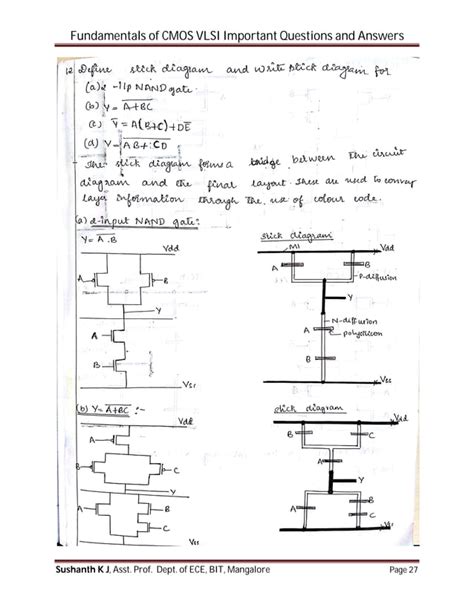 Fundamentals of CMOS VLSI Important Questions and Answers
12 Define stick diagram and write stick diagram for
(a) 2-i/p NAND gate.
(b) Y = A+BC
(c) Y = A(B+C)+DE
(d) Y = AB+CD
The stick diagram forms a bridge between the circuit
diagram and the final layout. These are used to convey
layer information through the use of colour code.
(a) 2-input NAND gate:
Y = A.B
stick diagram
Vdd
M1
Vdd
A
B
A
B
P-diffusion
Y
Y
A
N-diffusion
A
polysilicon
B
B
Vss
Vss
(b) Y = A+BC :-
stick diagram
Vdd
Vdd
A
B
C
B
C
A
Y
Y
A
B
C
A
B
C
Vss
Vss
Sushanth K J, Asst. Prof. Dept. of ECE, BIT, Mangalore
Page 27